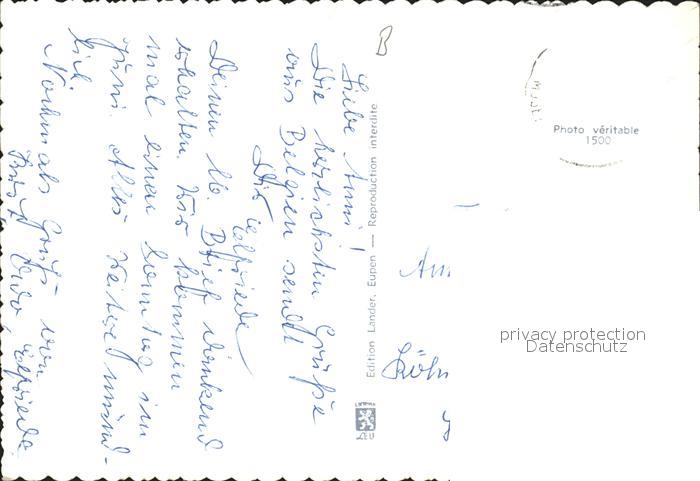 Liebe Anni!
Die herzlichsten Grüße
aus Belgien sendt
Dir Elfriede
Deinen lb. Brief dankend
erhalten. Wir kommen
mal einen Sonntag im
Juni. Alles Weitere münd-
lich.
Nochmals Gruß von
Elfriede
Edition Lander, Eupen — Reproduction interdite
LEU
B
Photo véritable
1500
An
Köln
privacy protection
Datenschutz